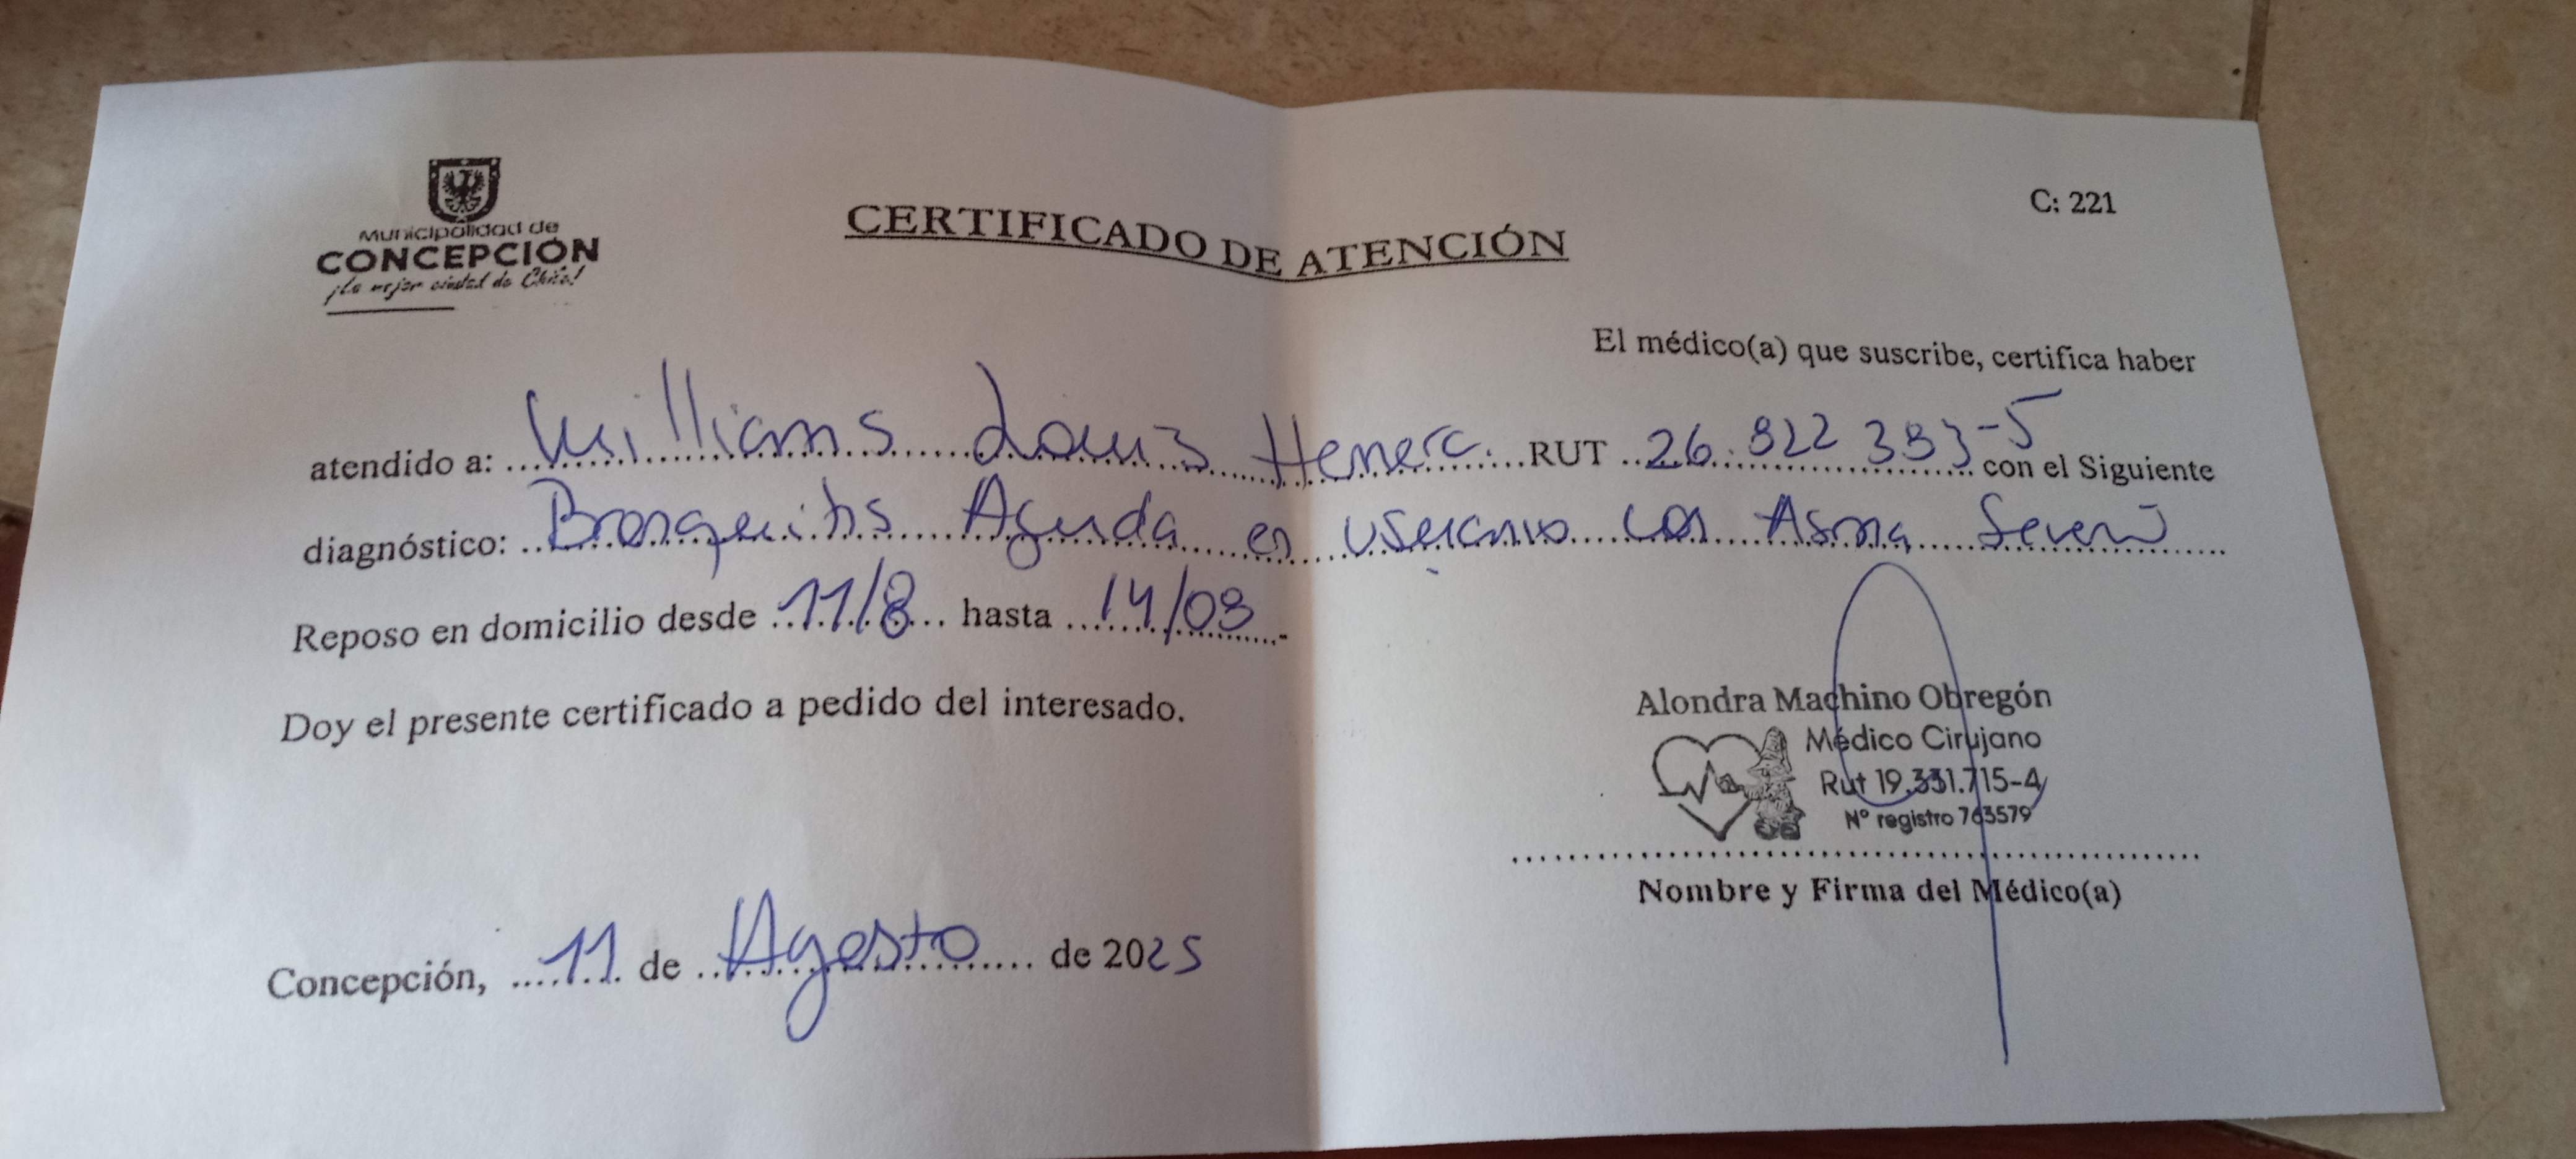 Municipalidad de
CONCEPCIÓN
¡La mejor ciudad de Chile!
CERTIFICADO DE ATENCIÓN
C: 221
El médico(a) que suscribe, certifica haber
atendido a: Williams Louis RUT 26. con el Siguiente
diagnóstico: Bronquitis Aguda en usuario con Asma Severo
Reposo en domicilio desde 11/8 hasta 14/08
Doy el presente certificado a pedido del interesado.
Alondra Machino Obregón
Médico Cirujano
Rut 19.331.715-4
Nº registro 763579
Nombre y Firma del Médico(a)
Concepción, 11 de Agosto de 2025